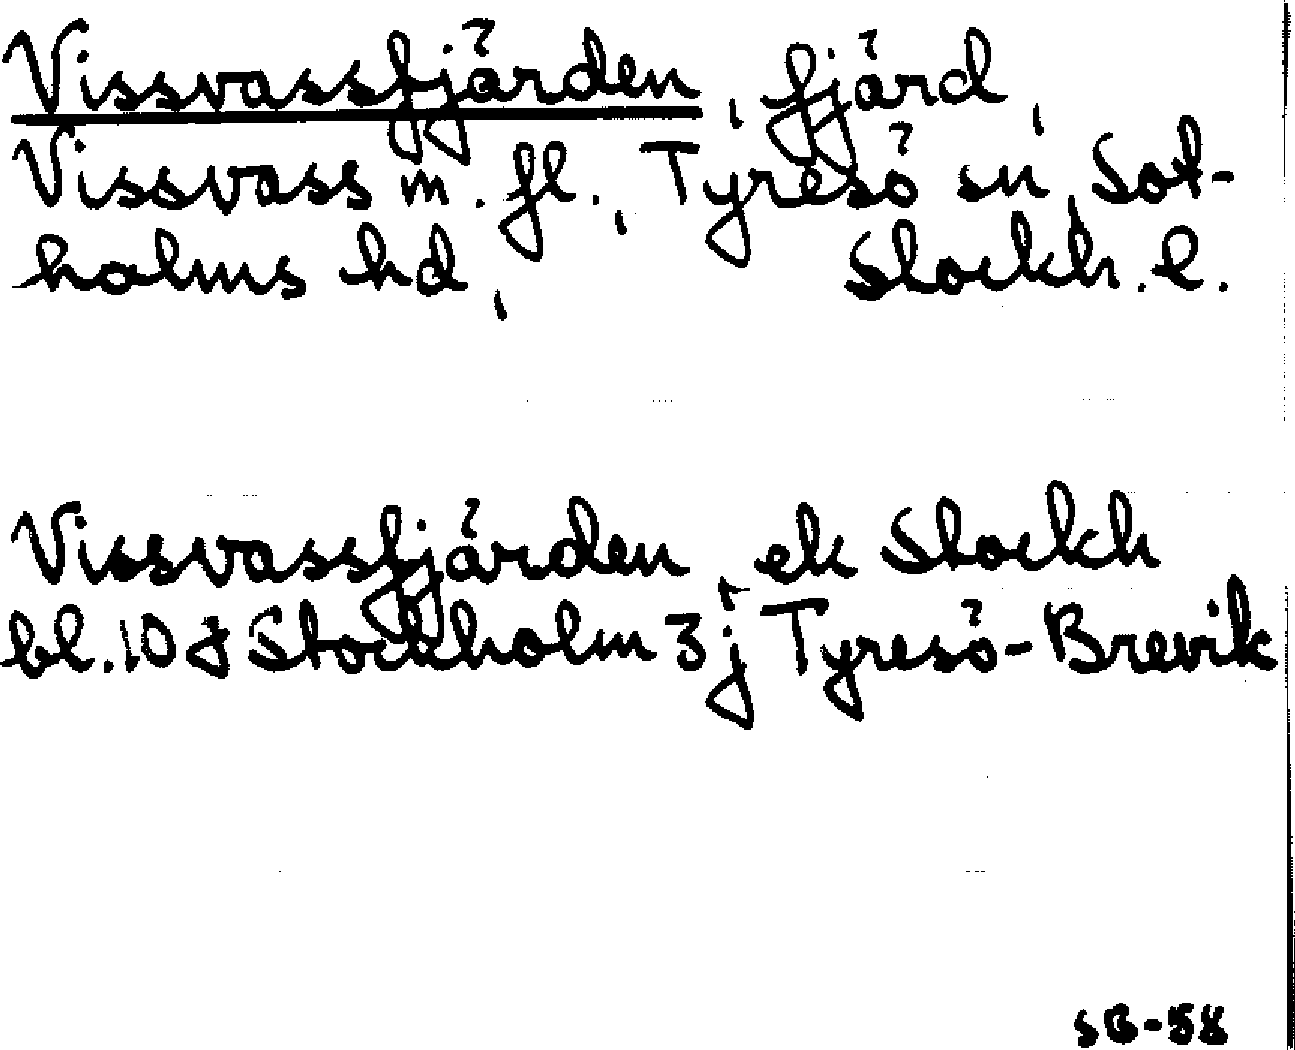 Vissvassfjärden, fjärd,
Vissvass m. fl., Tyresö sn, Sot-
holms hd, Stockh. l.
Vissvassfjärden, ek Stockh
bl. 10 J Stockholm 3 j Tyresö-Brevik
SB-58